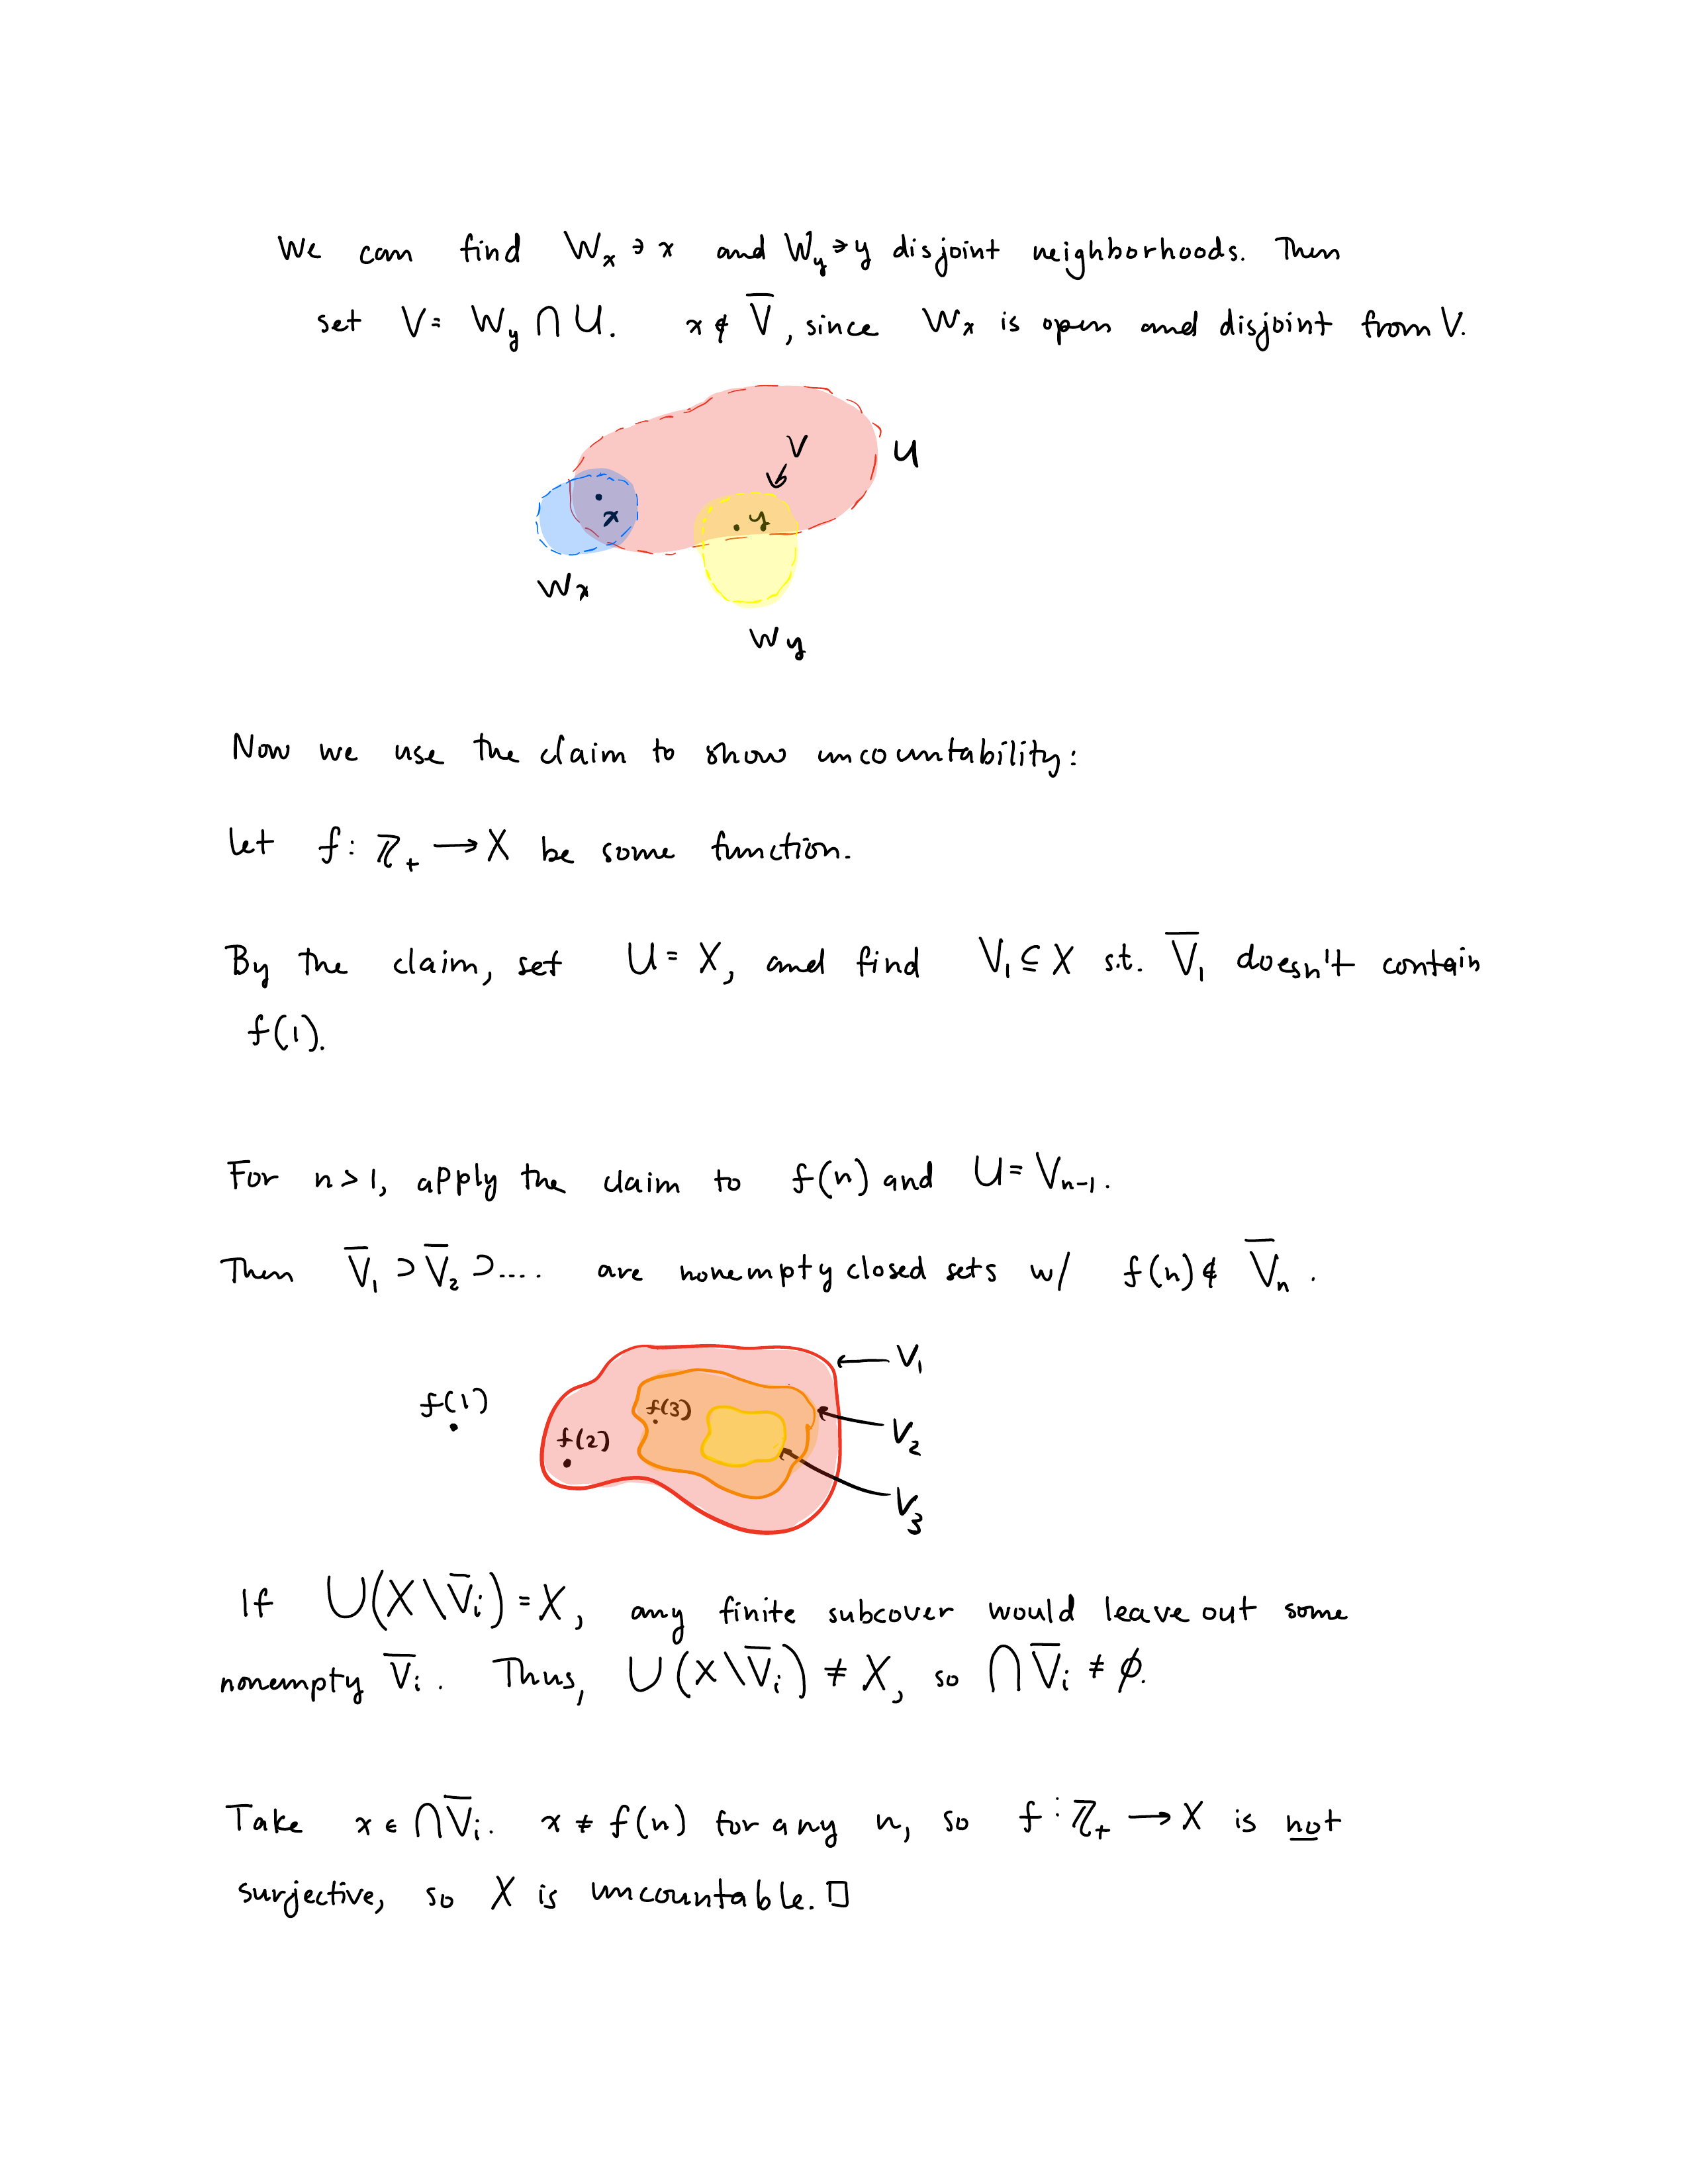 We can find Wₓ ∋ x and W_y ∋ y disjoint neighborhoods. Then
set V = W_y ∩ U. x ∉ V̅, since Wₓ is open and disjoint from V.
V
U
x
y
Wₓ
W_y
Now we use the claim to show uncountability:
Let f: ℤ₊ → X be some function.
By the claim, set U = X, and find V₁ ⊆ X s.t. V̅₁ doesn't contain
f(1).
For n > 1, apply the claim to f(n) and U = Vₙ₋₁.
Then V̅₁ ⊃ V̅₂ ⊃ .... are nonempty closed sets w/ f(n) ∉ V̅ₙ.
V₁
f(1)
f(3)
V₂
f(2)
V₃
If ∪(X \ V̅ᵢ) = X, any finite subcover would leave out some
nonempty V̅ᵢ. Thus, ∪(X \ V̅ᵢ) ≠ X, so ∩V̅ᵢ ≠ ∅.
Take x ∈ ∩V̅ᵢ. x ≠ f(n) for any n, so f: ℤ₊ → X is not
surjective, so X is uncountable. □